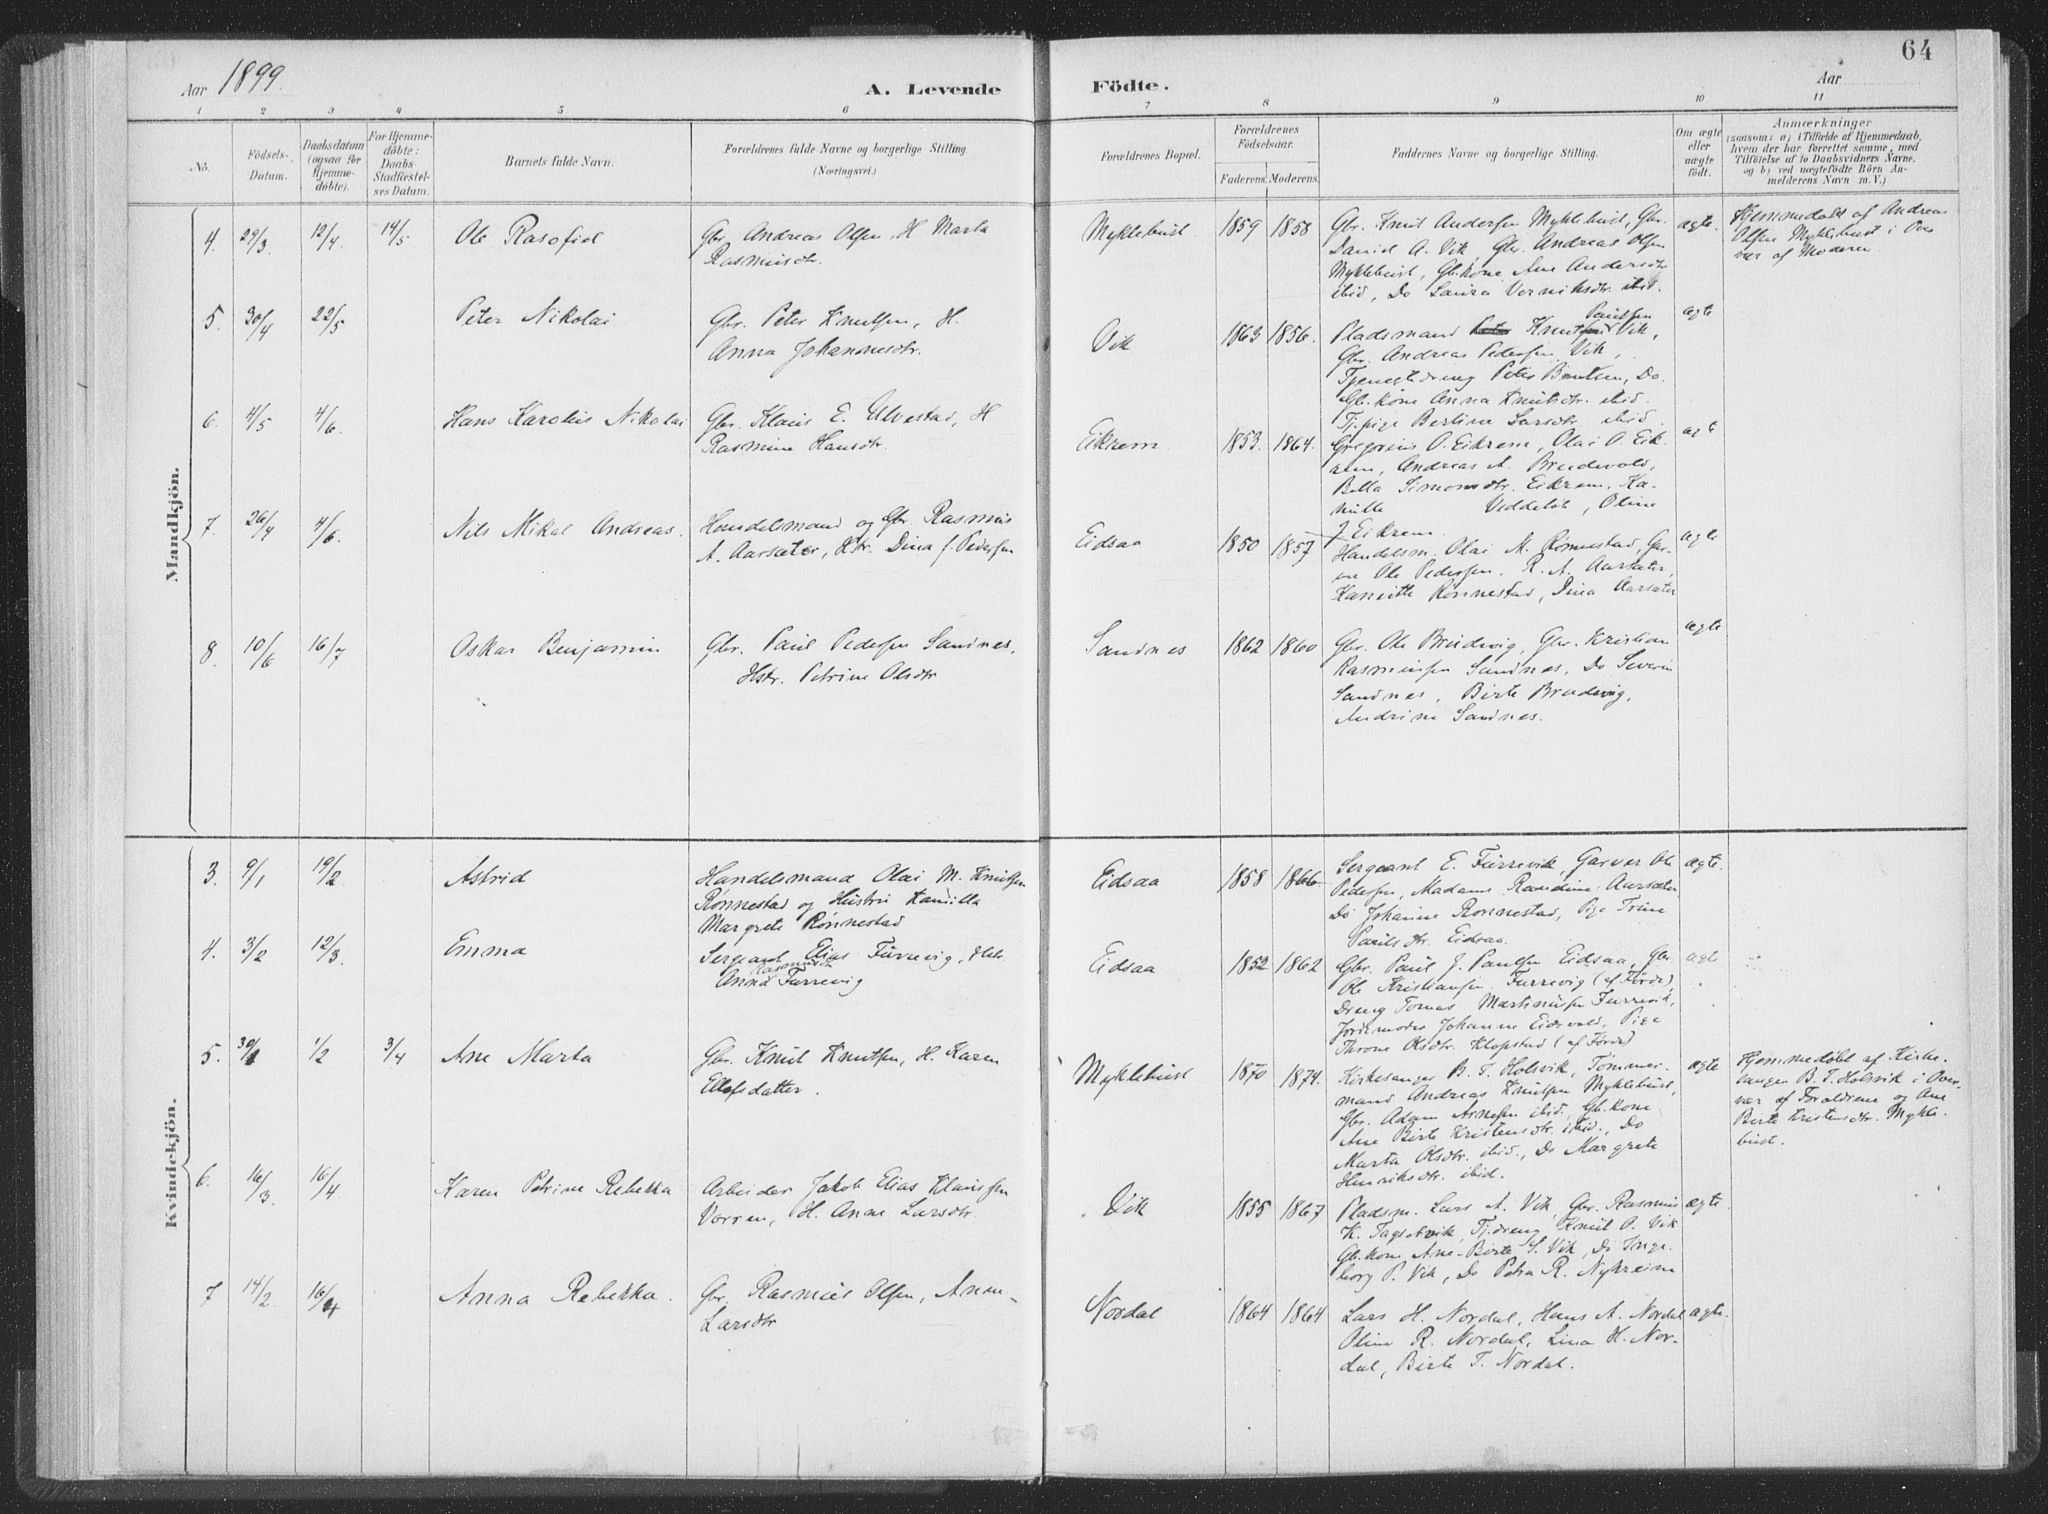 64
Aar 1899.
A. Levende Födte.
Aar
1 2 3 4 5 6 7 8 9 10 11
No.
Födsels-
Datum.
Daabsdatum
(ogsaa for
Hjemme-
döbte).
For Hjemme-
döbte:
Daabs-
Stadfæstel-
ses Datum.
Barnets fulde Navn.
Forældrenes fulde Navne og borgerlige Stilling.
(Næringsvei.)
Forældrenes Bopæl.
Forældrenes
Födselsaar.
Faderens. Moderens.
Faddernes Navne og borgerlige Stilling.
Om ægte
eller
uægte
födt.
Anmærkninger
(saasom: a) i Tilfælde af Hjemmedaab,
hvem der har forrettet samme, med
Tilföielse af to Daabsvidners Navne,
og b) ved uægtefödte Börn An-
melderens Navn m. V.)
Mandkjön.
4. 29/3. 12/4. 14/5. Ole Rasofiel
Gbr. Andreas Olsen, H Marta
Rasmusdtr.
Myklebust 1859 1858
Gbr. Knut Andersen Myklebust, Gbr.
David A. Vik, Gbr. Andreas Olsen
Myklebust, Gbkone Ane Andersdtr
ibid, Do Laura Verniksdtr. ibid.
ægte.
Hjemmedøbt af Andreas
Olsen Myklebust i Over
vær af Moderen
5. 30/4 22/5 Peter Nikolai
Gbr. Peter Knutsen, H.
Anna Johannesdtr.
Vik 1863 1856.
Paulsen
Pladsmand Knut Vik,
Gbr. Andreas Pedersen Vik,
Tjenestedreng Peter Bentsen, Do.
Gbkone Anna Knutsdtr. ibid.
Tj.pige Berline Larsdtr. ibid.
ægte
6. 4/5 4/6. Hans Karolus Nikolai
Gbr. Klaus E. Ulvestad, H
Rasmine Hansdtr.
Eikrem 1853. 1864.
Gregorius O. Eikrem, Olai O. Eik-
rem, Andreas A. Brudevold,
Bella Simonsdtr. Eikrem, Ka-
nutte Veddeløt, Oline
J Eikrem.
ægte
7. 26/4 4/6. Nils Mikal Andreas.
Handelsmand og Gbr. Rasmus
A. Aarsæter, Hstr. Dina f. Pedersen
Eidsaa 1850 1857
Handelsm. Olai M. Rønnestad, Gar-
ver Ole Pedersen, R. A. Aarsæter,
Kamilla Rønnestad, Dina Aarsæter
ægte
8. 10/6 16/7 Oskar Benjamin
Gbr. Paul Pedersen Sandnes,
Hstr. Petrine Olsdtr
Sandnes 1862 1860
Gbr. Ole Brudevig, Gbr. Kristian
Rasmussen Sandnes, Do Severin
Sandnes, Birte Brudevig,
Andrine Sandnes.
ægte
Kvindekjön.
3. 9/1 19/2 Astrid
Handelsmand Olai M. Knutsen
Rønnestad og Hustru Kamilla
Margrete Rønnestad
Eidsaa 1858 1866
Sergeant E. Furrevik, Garver Ole
Pedersen, Madame Randine Aarsæter
Do Johanne Rønnestad, Pige Trine
Paulsdtr. Eidsaa.
ægte
4. 3/2 12/3. Emma
Sergeant Elias Furrevig, Hstr.
Rasmusdtr
Anna Furrevig
Eidsaa 1852 1862
Gbr. Paul J. Paulsen Eidsaa, Gbr.
Ole Kristiansen Furrevig (af Förde),
Dreng Tomas Martinusen Furrevik,
Jordemoder Johanne Eidsvold, Pige
Throne Olsdtr. Klopstad (af Förde)
ægte
5. 30/1 1/2 3/4 Ane Marta
Gbr. Knut Knutsen, H. Karen
Ellefsdatter.
Myklebust 1870 1874.
Kirkesanger B. T. Holsvik, Tömmer-
mand Andreas Knutsen Myklebust,
Gbr. Adam Arnesen ibid., Gbkone
Ane Birte Kristensdtr. ibid., Do
Marta Olsdtr. ibid., Do Margrete
Henriksdtr. ibid.
ægte
Hjemmedøbt af Kirke-
sanger B. T. Holsvik i Over-
vær af Forældrene og Ane
Birte Kristensdtr. Mykle-
bust.
6. 16/3 16/4. Karen Petrine Rebekka
Arbeider Jakob Elias Klaussen
Vorren, H. Anne Larsdtr.
Vik 1855 1867
Pladsm. Lars A. Vik, Gbr. Rasmus
K. Tagsetvik, Tj.dreng Knut P. Vik
Gb.kone Ane-Birte S. Vik, Do Inge-
borg P. Vik, Do Petra R. Nykreim
ægte.
7 14/2. 16/4 Anna Rebekka.
Gbr. Rasmus Olsen, Anne
Larsdtr
Nordal 1864 1864
Lars H. Nordal, Hans A. Nordal
Oline R. Nordal, Lina H. Nor-
dal, Birte T. Nordal.
ægte.